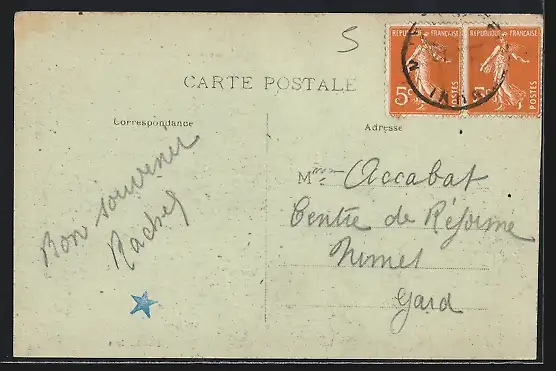 5
REPUBLIQUE FRANÇAISE REPUBLIQUE FRANÇAISE
5c POSTES 5c POSTES
CARTE POSTALE
Correspondance
Adresse
Bon souvenir
Rachel
Mme Accabat
Centre de Réforme
Nimes
Gard